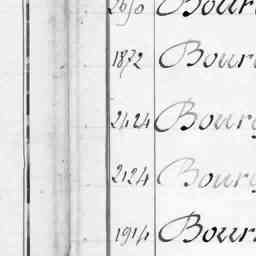 2650 Bour
1872 Bour
2424 Bourg
2124 Bourg
1914 Bour